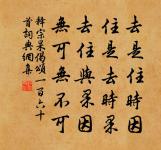 去是住時因
住是去時果
去住與果因
無可無不可
釋宗杲偈頌一百六十
首詞典網集